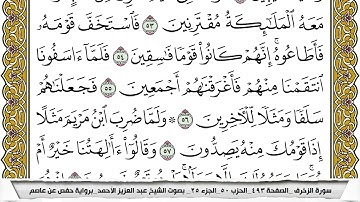 مَعَهُ ٱلْمَلَٰٓئِكَةُ مُقْتَرِنِينَ ٥٣ فَٱسْتَخَفَّ قَوْمَهُۥ
فَأَطَاعُوهُ ۚ إِنَّهُمْ كَانُوا۟ قَوْمًا فَٰسِقِينَ ٥٤ فَلَمَّآ ءَاسَفُونَا
ٱنتَقَمْنَا مِنْهُمْ فَأَغْرَقْنَٰهُمْ أَجْمَعِينَ ٥٥ فَجَعَلْنَٰهُمْ
سَلَفًا وَمَثَلًا لِّلْءَاخِرِينَ ٥٦ وَلَمَّا ضُرِبَ ٱبْنُ مَرْيَمَ مَثَلًا
إِذَا قَوْمُكَ مِنْهُ يَصِدُّونَ ٥٧ وَقَالُوٓا۟ ءَأَٰلِهَتُنَا خَيْرٌ أَمْ
سورة الزخرف _الصفحة ٤٩٣_الحزب ٥٠_الجزء ٢٥_ بصوت الشيخ عبد العزيز الأحمد_برواية حفص عن عاصم